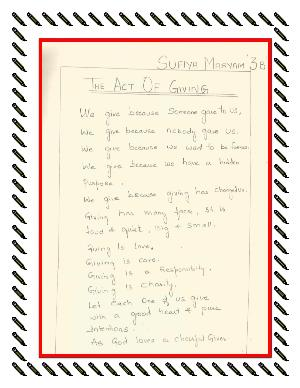 SUFIYA MARYAM 3B
THE ACT OF GIVING
We give because someone gave to us,
We give because nobody gave us.
We give because we want to be famous
We give because we have a hidden
Purpose.
We give because giving has changed us.
Giving has many face, It is
loud & quiet, Big & small.
Giving Is Love,
Giving is care.
Giving is a Responsibility,
Giving is Charity.
Let each one of us give
with a good heart & pure
Intentions.
As God loves a cheerful Giver